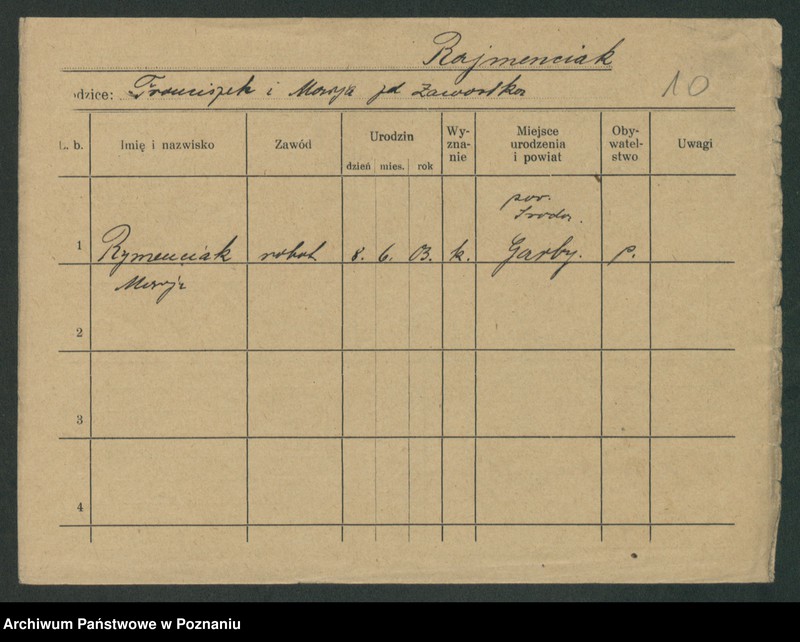 Rajmenciak
odzice: Franciszek i Maryja zd Zawortka
10
L. b.
Imię i nazwisko
Zawód
Urodzin
dzień mies. rok
Wy-
zna-
nie
Miejsce
urodzenia
i powiat
Oby-
watel-
stwo
Uwagi
pow.
Środa.
1 Rymenciak robot. 8. 6. 03. k. Garby. p.
Maryja
2
3
4
Archiwum Państwowe w Poznaniu